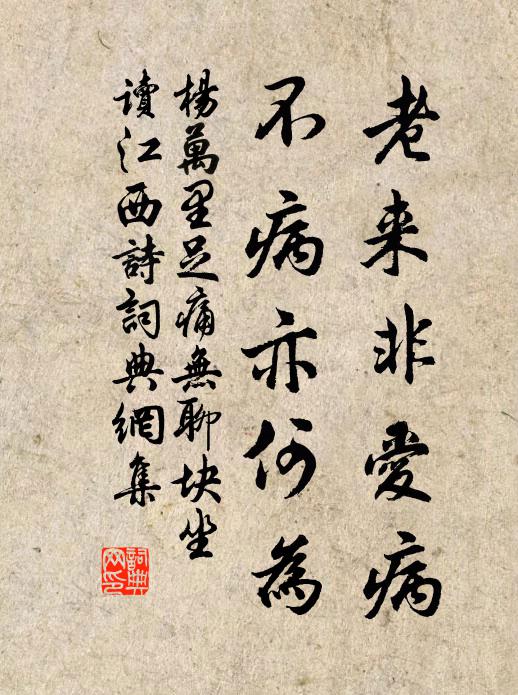 老来非愛病
不病亦何為
楊萬里足痛無聊块坐
讀江西詩詞典網集
詞典网印